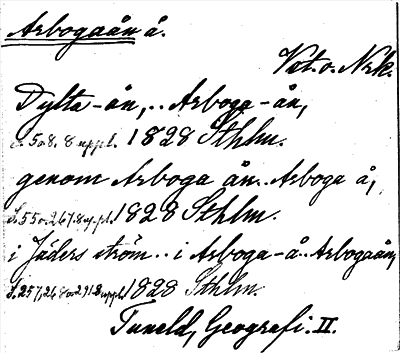 Arbogaån å.
Vat. o. Nrk.
Dylta-ån, .. Arboga-ån,
s. 50. 8. 8 uppl. 1828 Sthlm.
genom Arboga ån. Arboga å,
S. 55 o. 267. 8 upl. 1828 Sthlm.
i Jäders ström .. i Arboga-å. Arbogaån,
S. 257, 268 o. 291. 8 uppl. 1828 Sthlm.
Tuneld, Geografi. II.